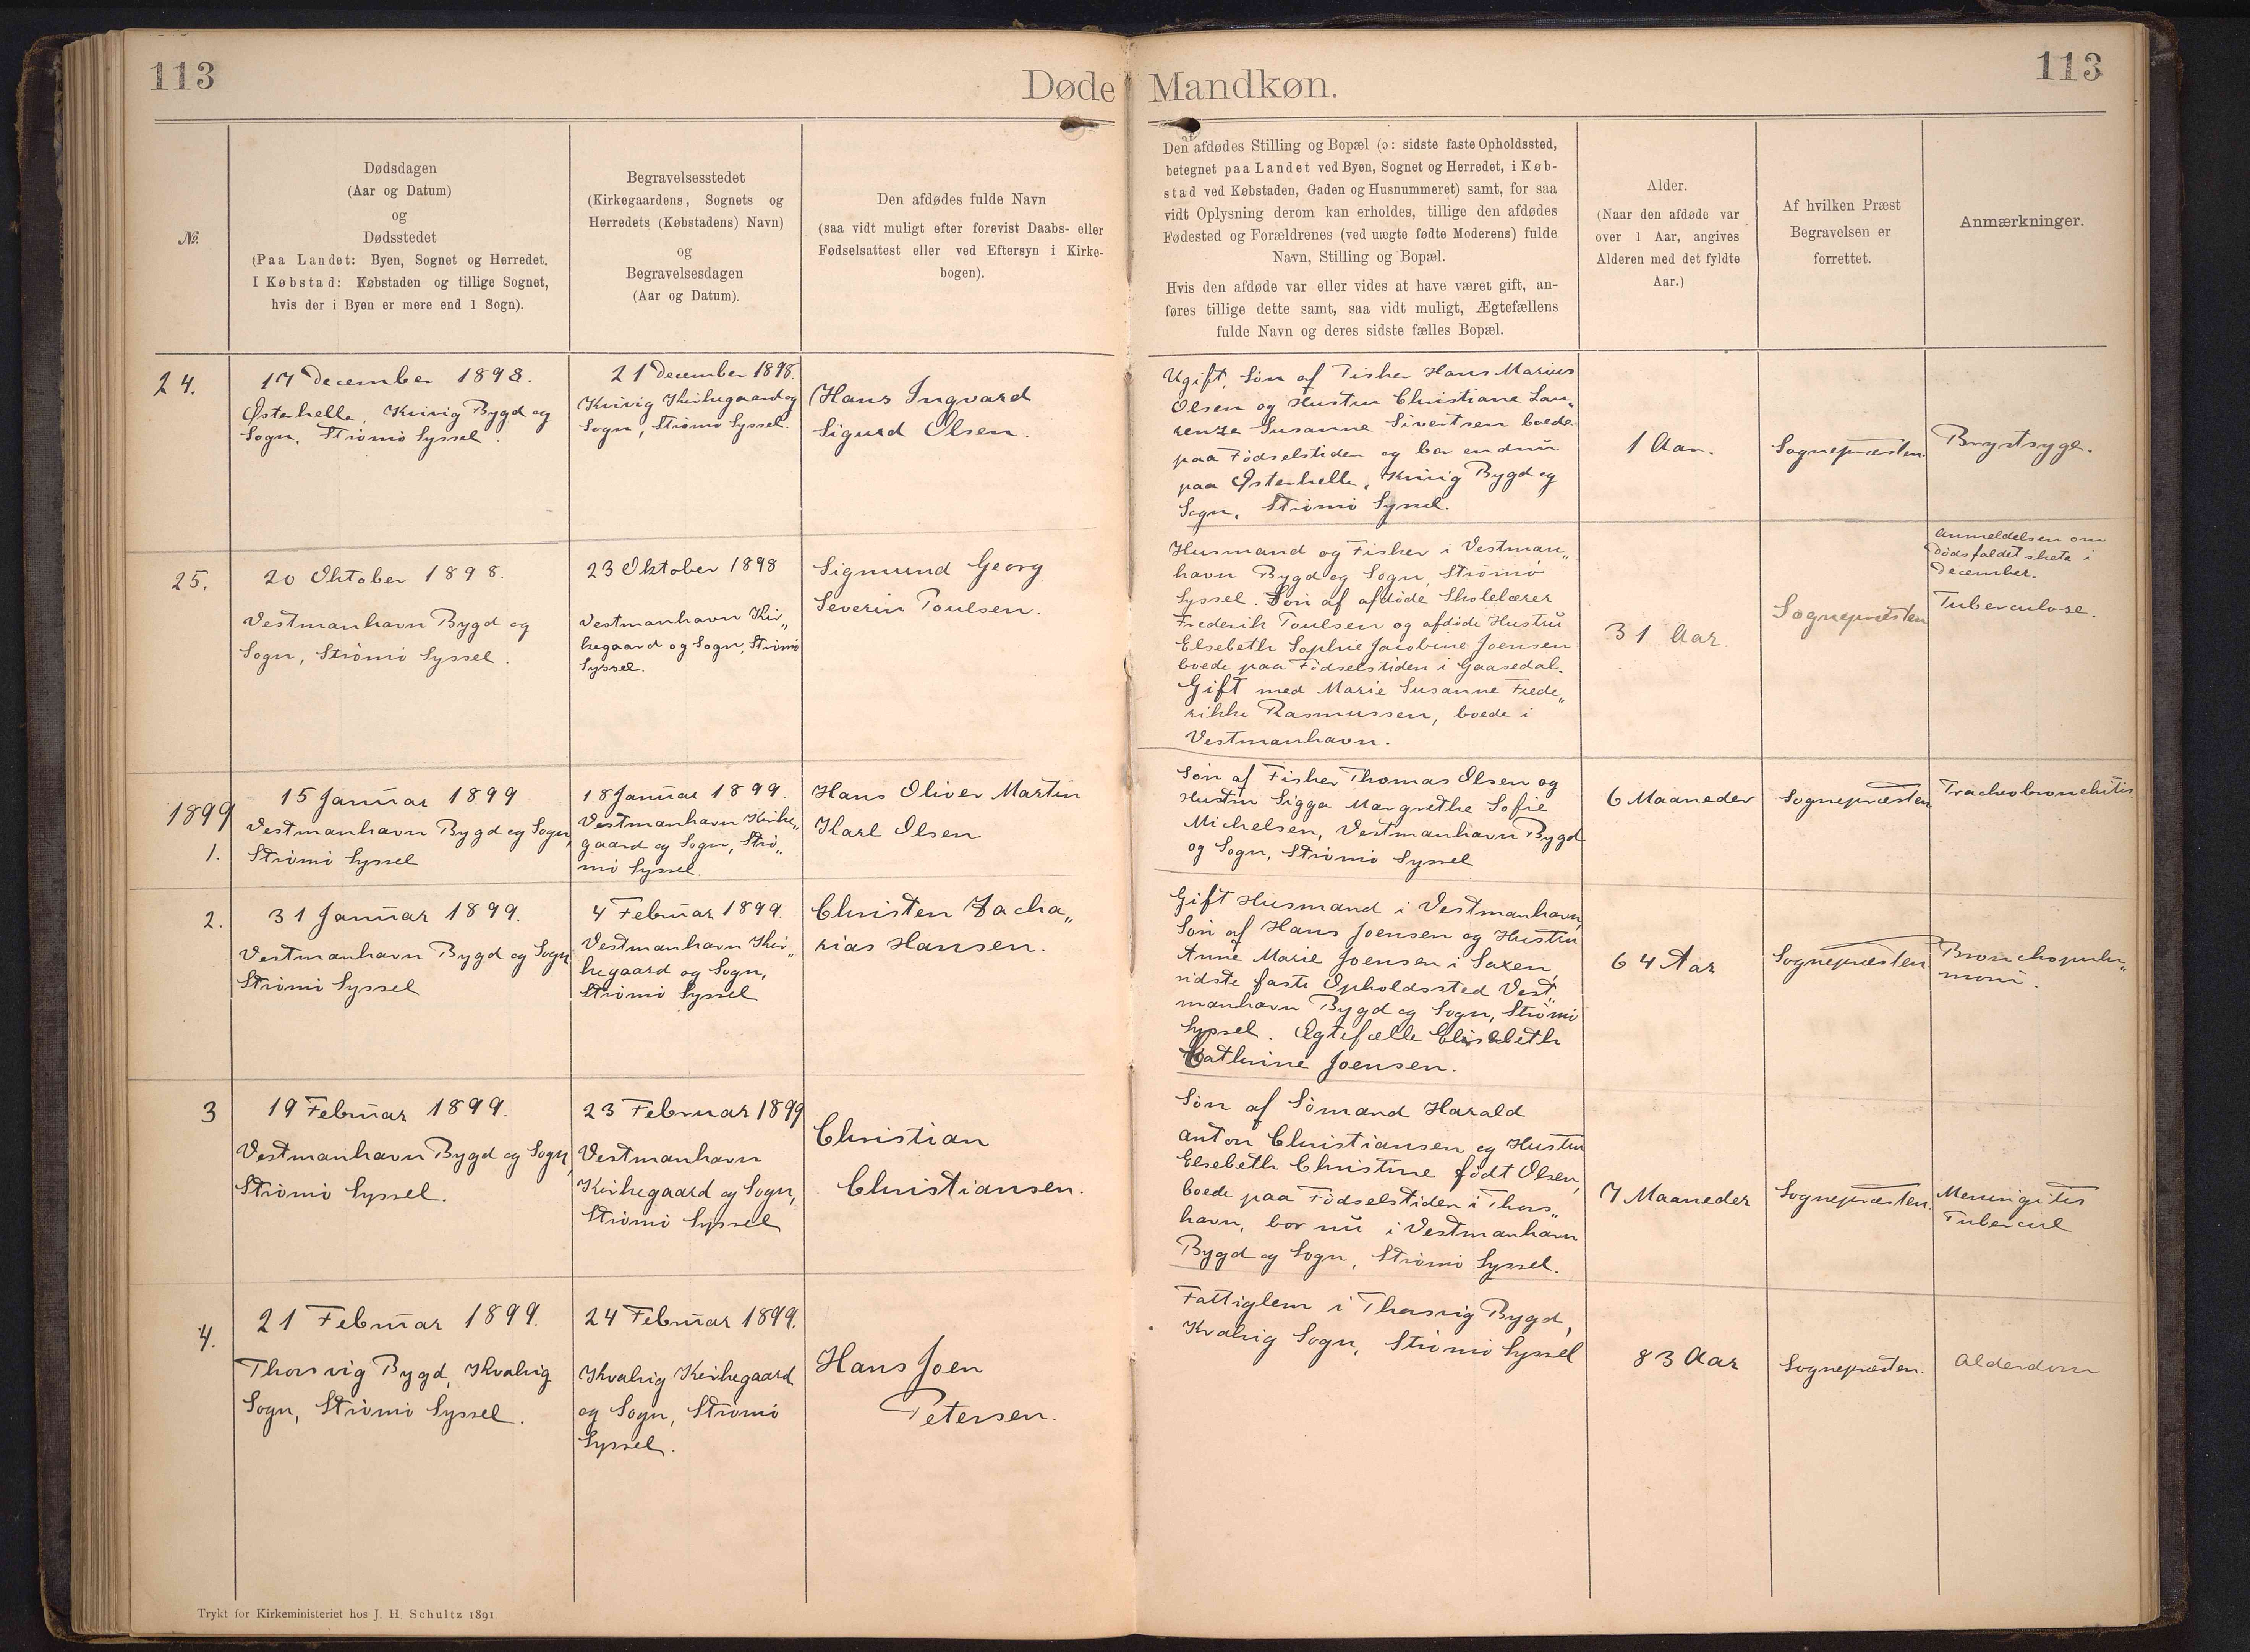 113
Døde
Mandkøn.
113
№.
Dødsdagen
(Aar og Datum)
og
Dødsstedet
(Paa Landet: Byen, Sognet og Herredet.
I Købstad: Købstaden og tillige Sognet,
hvis der i Byen er mere end 1 Sogn).
Begravelsesstedet
(Kirkegaardens, Sognets og
Herredets (Købstadens) Navn)
og
Begravelsesdagen
(Aar og Datum).
Den afdødes fulde Navn
(saa vidt muligt efter forevist Daabs- eller
Fødselsattest eller ved Eftersyn i Kirke-
bogen).
Den afdødes Stilling og Bopæl (ɔ: sidste faste Opholdssted,
betegnet paa Landet ved Byen, Sognet og Herredet, i Køb-
stad ved Købstaden, Gaden og Husnummeret) samt, for saa
vidt Oplysning derom kan erholdes, tillige den afdødes
Fødested og Forældrenes (ved uægte fødte Moderens) fulde
Navn, Stilling og Bopæl.
Hvis den afdøde var eller vides at have været gift, an-
føres tillige dette samt, saa vidt muligt, Ægtefællens
fulde Navn og deres sidste fælles Bopæl.
Alder.
(Naar den afdøde var
over 1 Aar, angives
Alderen med det fyldte
Aar.)
Af hvilken Præst
Begravelsen er
forrettet.
Anmærkninger.
24.
17 December 1898.
Østerhelle, Kvivig Bygd og
Sogn, Strømø Syssel.
21 December 1898.
Kvivig Kirkegaard og
Sogn, Strømø Syssel.
Hans Ingvard
Sigurd Olsen.
Ugift, Søn af Fisker Hans Marius
Olsen og Hustru Christiane Lau„
renze Susanne Sivertsen boede
paa Fødselstiden og bor endnu
paa Østerhelle, Kvivig Bygd og
Sogn, Strømø Syssel.
1 Aar.
Sognepræsten.
Brystsyge.
25.
20 Oktober 1898.
Vestmanhavn Bygd og
Sogn, Strømø Syssel.
23 Oktober 1898
Vestmanhavn Kir„
kegaard og Sogn, Strømø
Syssel.
Sigmund Georg
Severin Poulsen.
Husmand og Fisker i Vestman„
havn Bygd og Sogn, Strømø
Syssel. Søn af afdøde Skolelærer
Frederik Poulsen og afdøde Hustru
Elsebeth Sophie Jacobine Joensen
boede paa Fødselstiden i Gaasedal.
Gift med Marie Susanne Frede„
rikke Rasmussen, boede i
Vestmanhavn.
31 Aar.
Sognepræsten
Anmeldelsen om
Dødsfaldet skete i
December.
Tuberculose.
1899
1.
15 Januar 1899
Vestmanhavn Bygd og Sogn,
Strømø Syssel
18 Januar 1899.
Vestmanhavn Kirke„
gaard og Sogn, Strø„
mø Syssel.
Hans Oliver Martin
Karl Olsen
Søn af Fisker Thomas Olsen og
Hustru Sigga Margrethe Sofie
Michelsen, Vestmanhavn Bygd
og Sogn, Strømø Syssel
6 Maaneder
Sognepræsten
Tracheobronchitis
2.
31 Januar 1899.
Vestmanhavn Bygd og Sogn
Strømø Syssel
4 Februar 1899.
Vestmanhavn Kir„
kegaard og Sogn,
Strømø Syssel
Christen Zacha„
rias Hansen.
Gift Husmand i Vestmanhavn,
Søn af Hans Joensen og Hustru
Anne Marie Joensen i Saxen,
sidste faste Opholdssted Vest„
manhavn Bygd og Sogn, Strømø
Syssel. Ægtefælle Elisabeth
Cathrine Joensen.
64 Aar
Sognepræsten
Bronchopnlu„
moni.
3
19 Februar 1899.
Vestmanhavn Bygd og Sogn,
Strømø Syssel.
23 Februar 1899
Vestmanhavn
Kirkegaard og Sogn,
Strømø Syssel
Christian
Christiansen.
Søn af Sømand Harald
Anton Christiansen og Hustru
Elsebeth Christine født Olsen,
boede paa Fødselstiden i Thors„
havn, bor nu i Vestmanhavn
Bygd og Sogn, Strømø Syssel.
7 Maaneder
Sognepræsten.
Meningitis
Tubercul
4.
21 Februar 1899.
Thorsvig Bygd, Kvalvig
Sogn, Strømø Syssel.
24 Februar 1899.
Kvalvig Kirkegaard
og Sogn, Strømø
Syssel.
Hans Joen
Petersen.
Fattiglem i Thorsvig Bygd,
Kvalvig Sogn, Strømø Syssel
83 Aar
Sognepræsten.
Alderdom
Trykt for Kirkeministeriet hos J. H. Schultz 1891